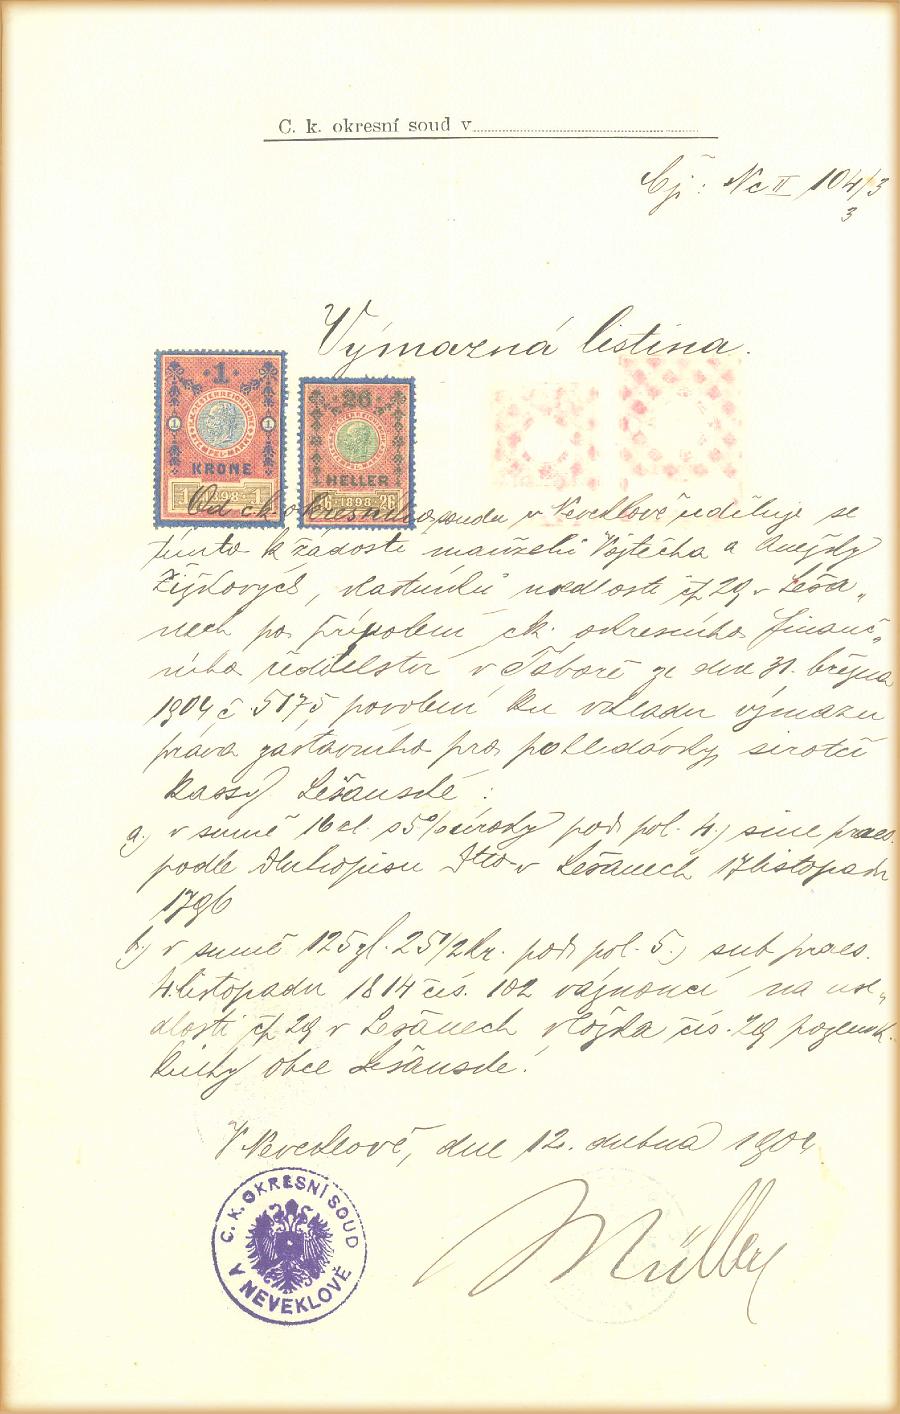 C. k. okresní soud v
Čj: Nc II 104/3
3
Výmazná listina.
1
K. K. OESTERREICHISCHE
STEMPEL-MARKE
1 1
KRONE
1 1898 1
26
HELLER
26 1898 26
Od ck. okresního soudu v Neveklově uděluje se
tímto k žádosti manželů Vojtěcha a Anežky
Žižkových, vlastníků usedlosti čp 29 v Leša„
nech po připojení ck. okresního finanč„
ního ředitelství v Táboře ze dne 31. března
1904 č 5175 povolení ku vkladu výmazu
práva zástavního pro pohledávky sirotčí
kassy Lešanské:
a.) v sumě 16 zl. s 5% úroky pod pol. 4.) sine praes.
podle dluhopisu dtto v Lešanech 17 listopadu
1796
b.) v sumě 125 zl. 25 1/2 kr. pod pol. 5.) sub praes.
4. listopadu 1814 čís. 102 váznoucí na use„
dlosti čp 29 v Lešanech vložka čís. 29 pozemk.
knihy obce Lešanské.
V Neveklově, dne 12. dubna 1904
C. K. OKRESNÍ SOUD
V NEVEKLOVĚ
Müller